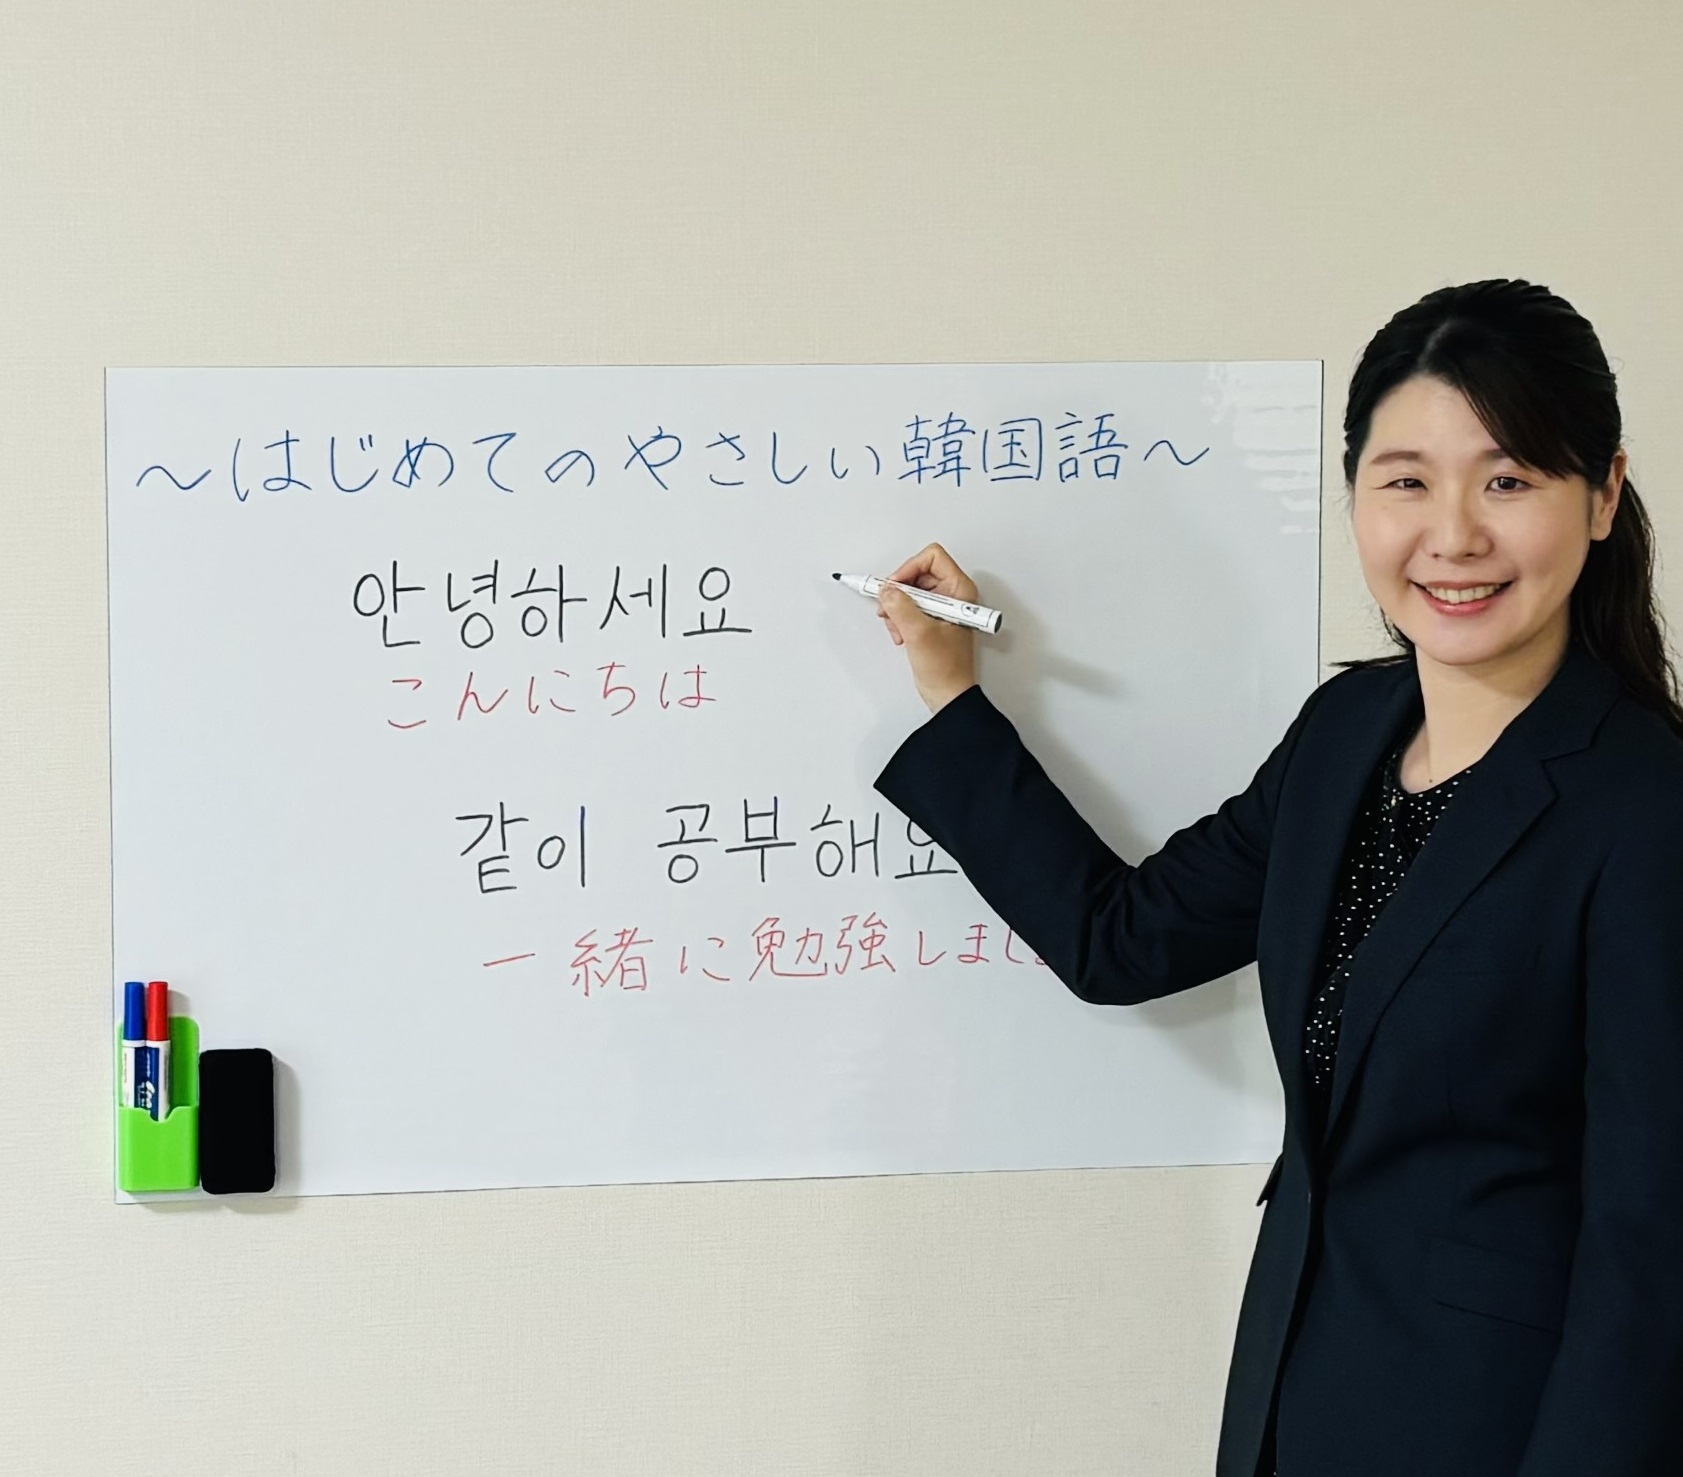 ～はじめてのやさしい韓国語～
안녕하세요
こんにちは
같이 공부해요
一緒に勉強しまし